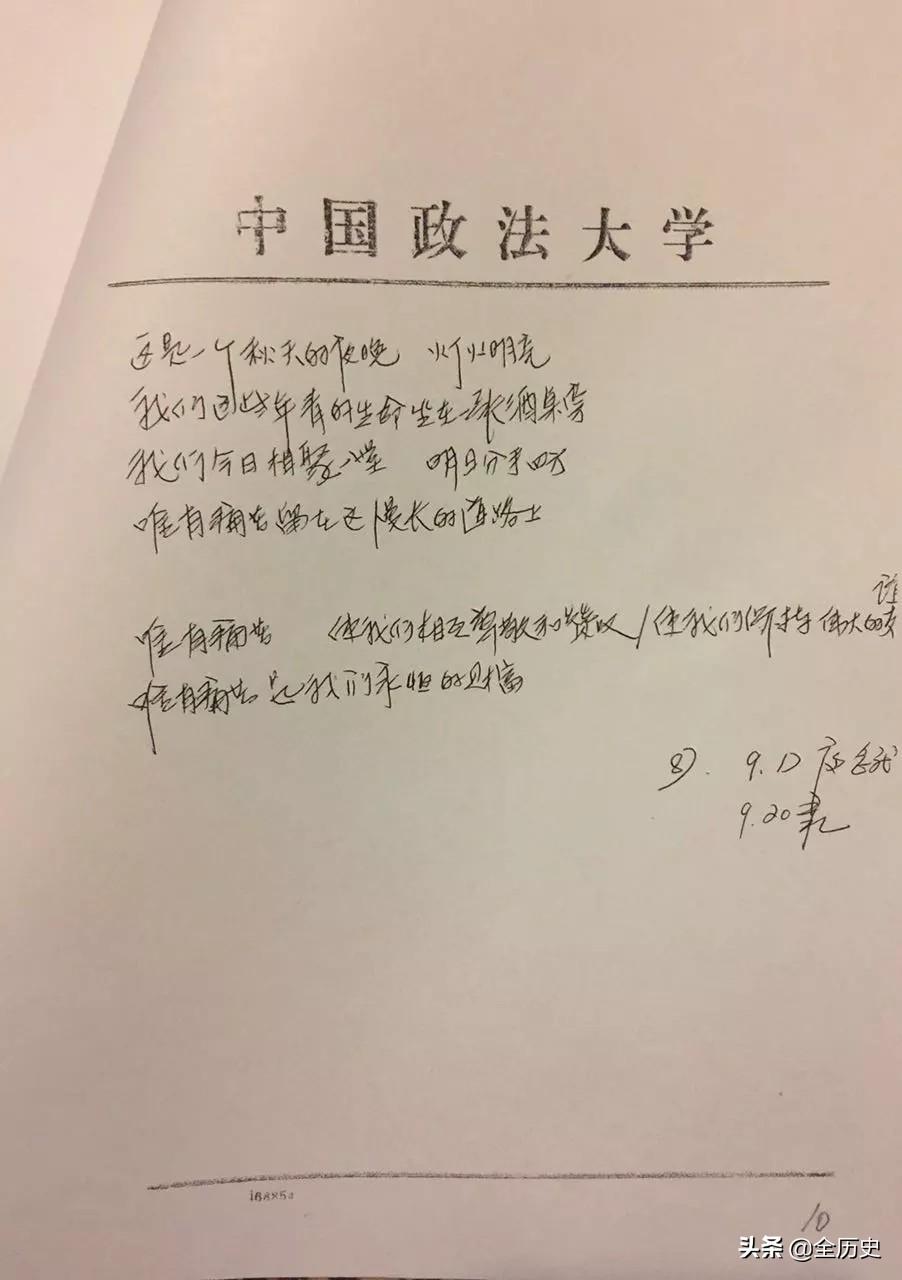 中国政法大学
这是一个秋天的夜晚 灯火明亮
我们这些年青的生命坐在一张酒桌旁
我们今日相聚一堂 明日分手四方
唯有痛苦留在这漫长的道路上
唯有痛苦 使我们相互尊敬和赞叹/使我们保持伟大的友谊
唯有痛苦是我们永恒的财富
9.17
9.20
16885
10
头条 @全历史